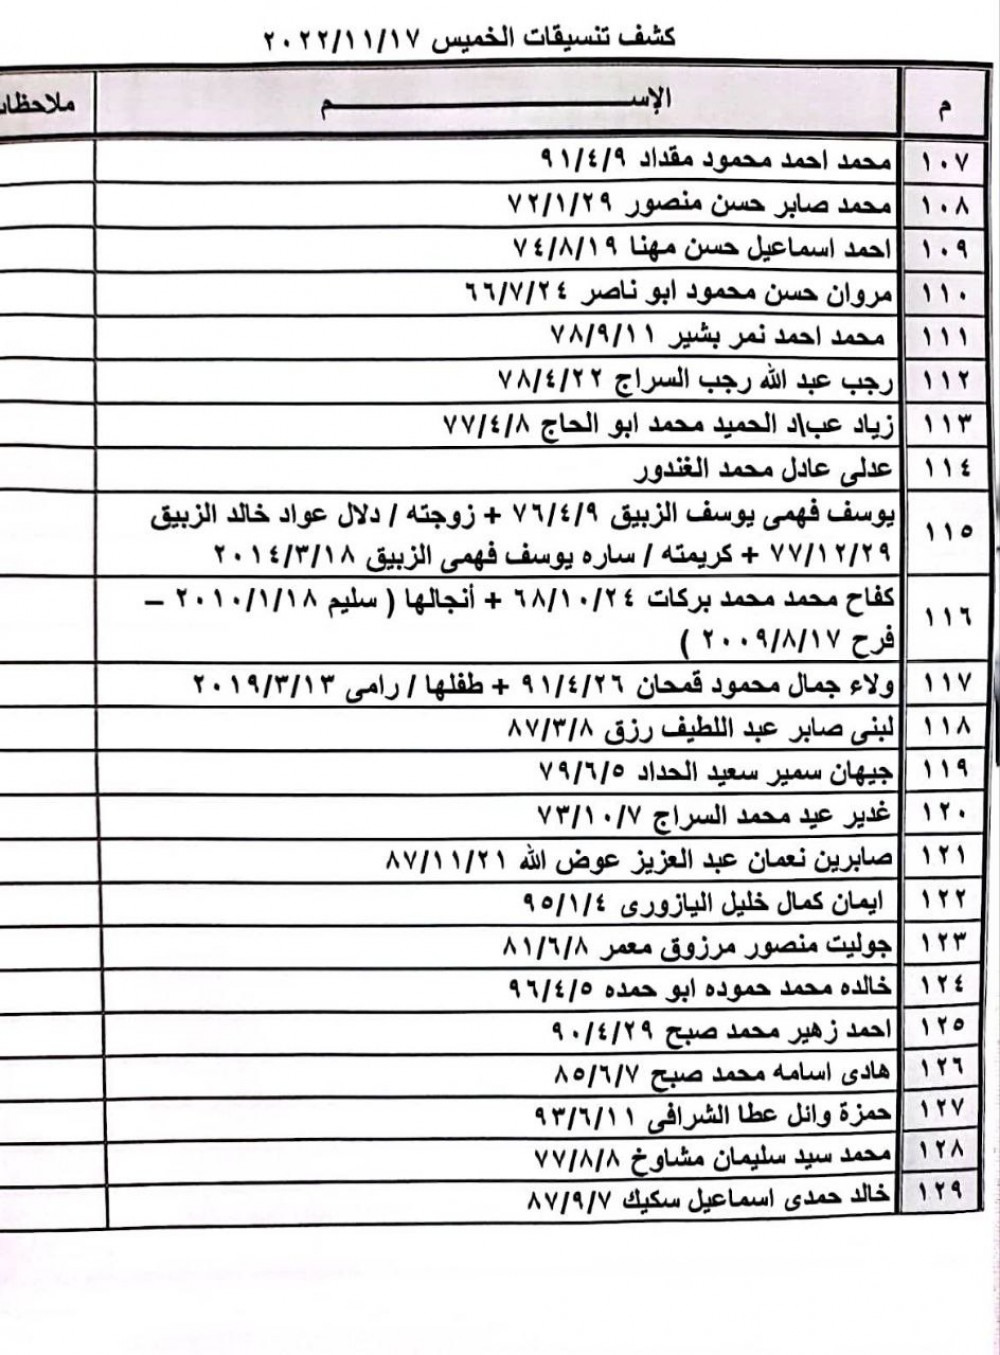 كشف تنسيقات الخميس ٢٠٢٢/١١/١٧
م الإســـــــــــم ملاحظات
١٠٧ محمد احمد محمود مقداد ٩١/٤/٩
١٠٨ محمد صابر حسن منصور ٧٢/١/٢٩
١٠٩ احمد اسماعيل حسن مهنا ٧٤/٨/١٩
١١٠ مروان حسن محمود ابو ناصر ٦٦/٧/٢٤
١١١ محمد احمد نمر بشير ٧٨/٩/١١
١١٢ رجب عبد الله رجب السراج ٧٨/٤/٢٢
١١٣ زياد عب\د الحميد محمد ابو الحاج ٧٧/٤/٨
١١٤ عدلى عادل محمد الغندور
١١٥ يوسف فهمى يوسف الزبيق ٧٦/٤/٩ + زوجته / دلال عواد خالد الزبيق
٧٧/١٢/٢٩ + كريمته / ساره يوسف فهمى الزبيق ٢٠١٤/٣/١٨
١١٦ كفاح محمد محمد بركات ٦٨/١٠/٢٤ + أنجالها ( سليم ٢٠١٠/١/١٨ –
فرح ٢٠٠٩/٨/١٧ )
١١٧ ولاء جمال محمود قمحان ٩١/٤/٢٦ + طفلها / رامى ٢٠١٩/٣/١٣
١١٨ لبنى صابر عبد اللطيف رزق ٨٧/٣/٨
١١٩ جيهان سمير سعيد الحداد ٧٩/٦/٥
١٢٠ غدير عيد محمد السراج ٧٣/١٠/٧
١٢١ صابرين نعمان عبد العزيز عوض الله ٨٧/١١/٢١
١٢٢ ايمان كمال خليل اليازورى ٩٥/١/٤
١٢٣ جوليت منصور مرزوق معمر ٨١/٦/٨
١٢٤ خالده محمد حموده ابو حمده ٩٦/٤/٥
١٢٥ احمد زهير محمد صبح ٩٠/٤/٢٩
١٢٦ هادى اسامه محمد صبح ٨٥/٦/٧
١٢٧ حمزة وائل عطا الشرافى ٩٣/٦/١١
١٢٨ محمد سيد سليمان مشاوخ ٧٧/٨/٨
١٢٩ خالد حمدى اسماعيل سكيك ٨٧/٩/٧